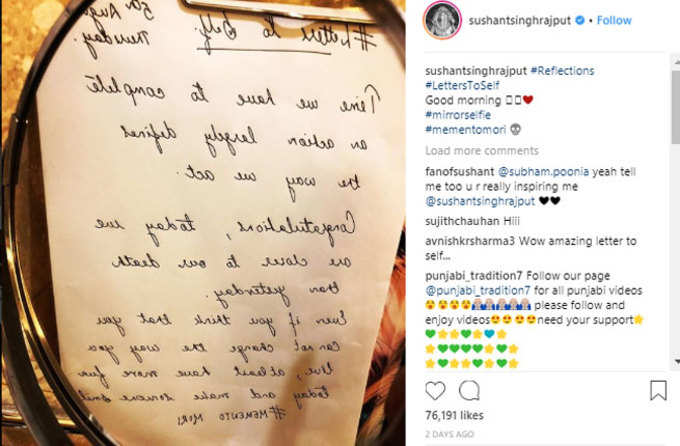 5th Aug
Thursday.
#Letters to Self.
Time we have to complete
an action largely defines
the way we act.
Congratulations, today we
are closer to our death
than yesterday.
Even if you think that you
can not change the way you
live, atleast have more fun
today and make someone smile
#MEMENTO MORI
sushantsinghrajput • Follow
sushantsinghrajput #Reflections
#LettersToSelf
Good morning ▯▯❤
#mirrorselfie
#mementomori 💀
Load more comments
fanofsushant @subham.poonia yeah tell
me too u r really inspiring me
@sushantsinghrajput 🖤🖤
sujithchauhan Hiii
avnishkrsharma3 Wow amazing letter to
self...
punjabi_tradition7 Follow our page
@punjabi_tradition7 for all punjabi videos
please follow and
enjoy videos😍😍😍😍need your support🌟
76,191 likes
2 DAYS AGO